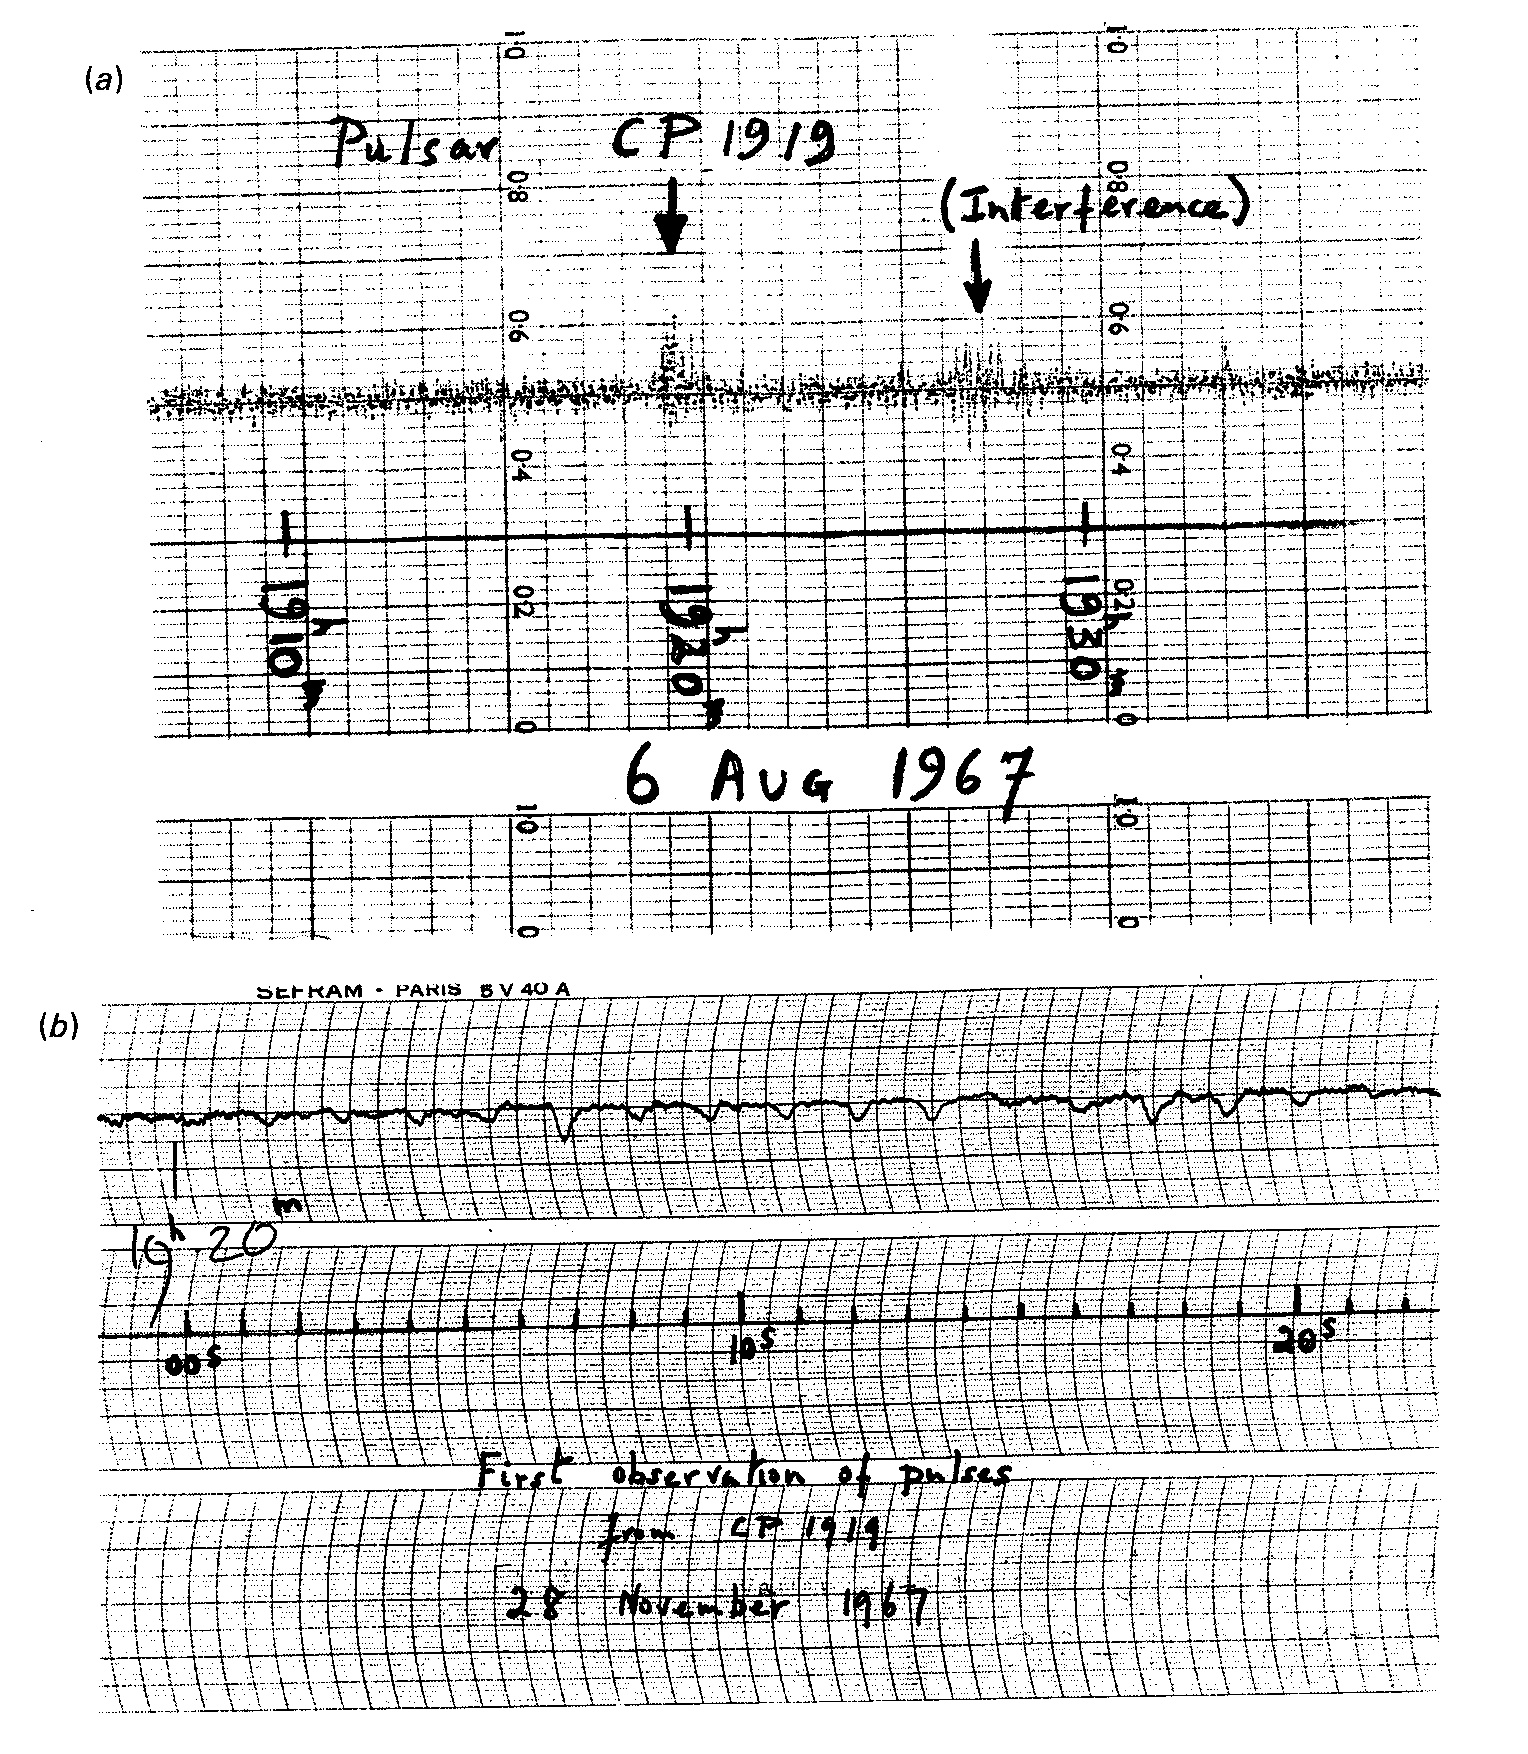 (a)
1.0 1.0
Pulsar CP 1919
0.8 0.8
(Interference)
0.6 0.6
0.4 0.4
19h10m 19h20m 19h30m
0.2 0.2
0 0
6 AUG 1967
1.0 1.0
0 0
SEFRAM - PARIS
(b)
19h 20m
00s 10s 20s
First observation of pulses
from CP 1919
28 November 1967